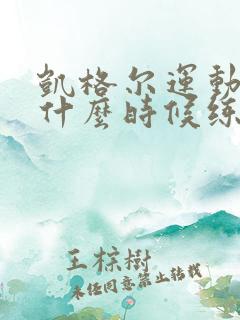 凱格尔運動
什麼時候练
王棕樹
未经同意禁止转载